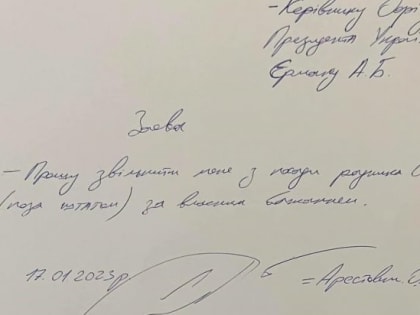 - Керівнику Офі
Президента Украї
Єрмаку А.Б.
Заява
- Прошу звільнити мене з посади радника
(поза штатом) за власним бажанням.
17.01.2023р.
= Арестович О.